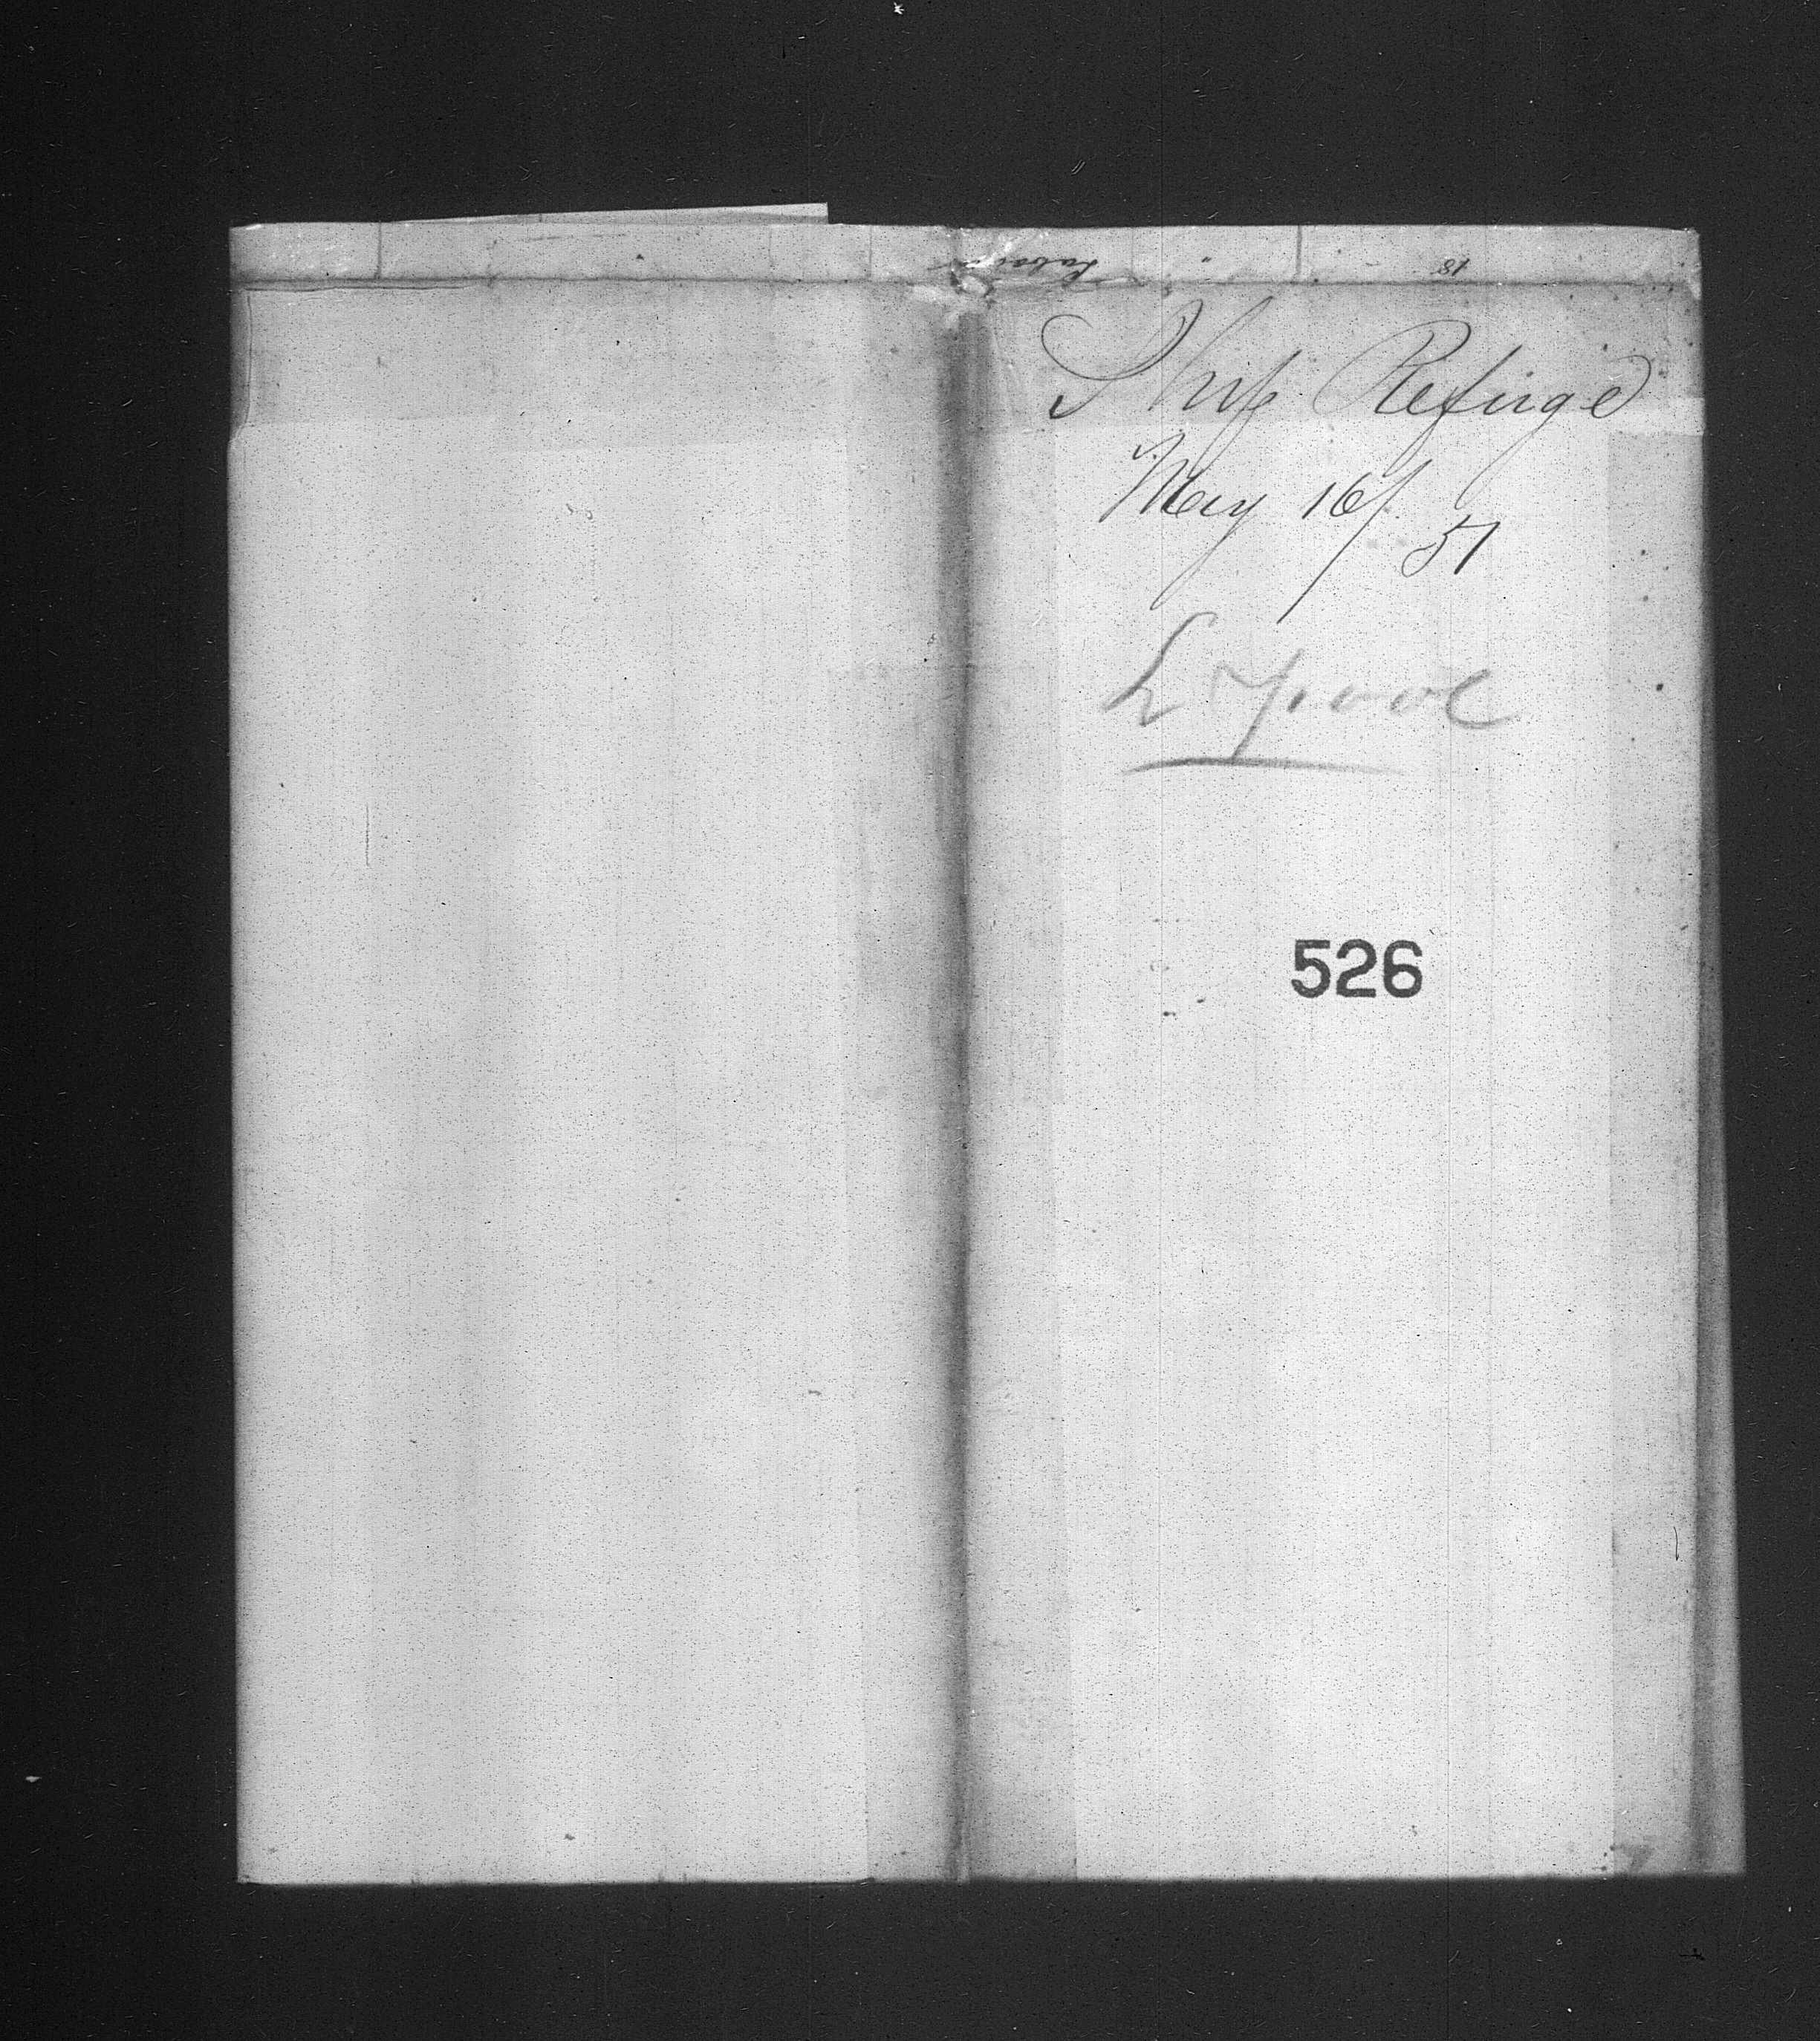 Ship Refuge
May 16/51
L'pool
526